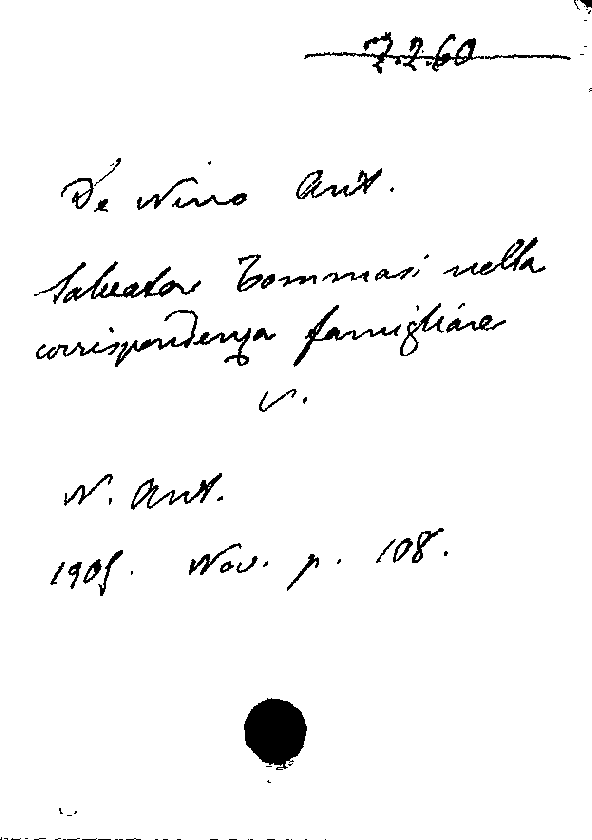 7.2.60
De Nino Ant.
Salvatore Tommasi nella
corrispondenza famigliare
v.
N. Ant.
1905. Nov. p. 108.